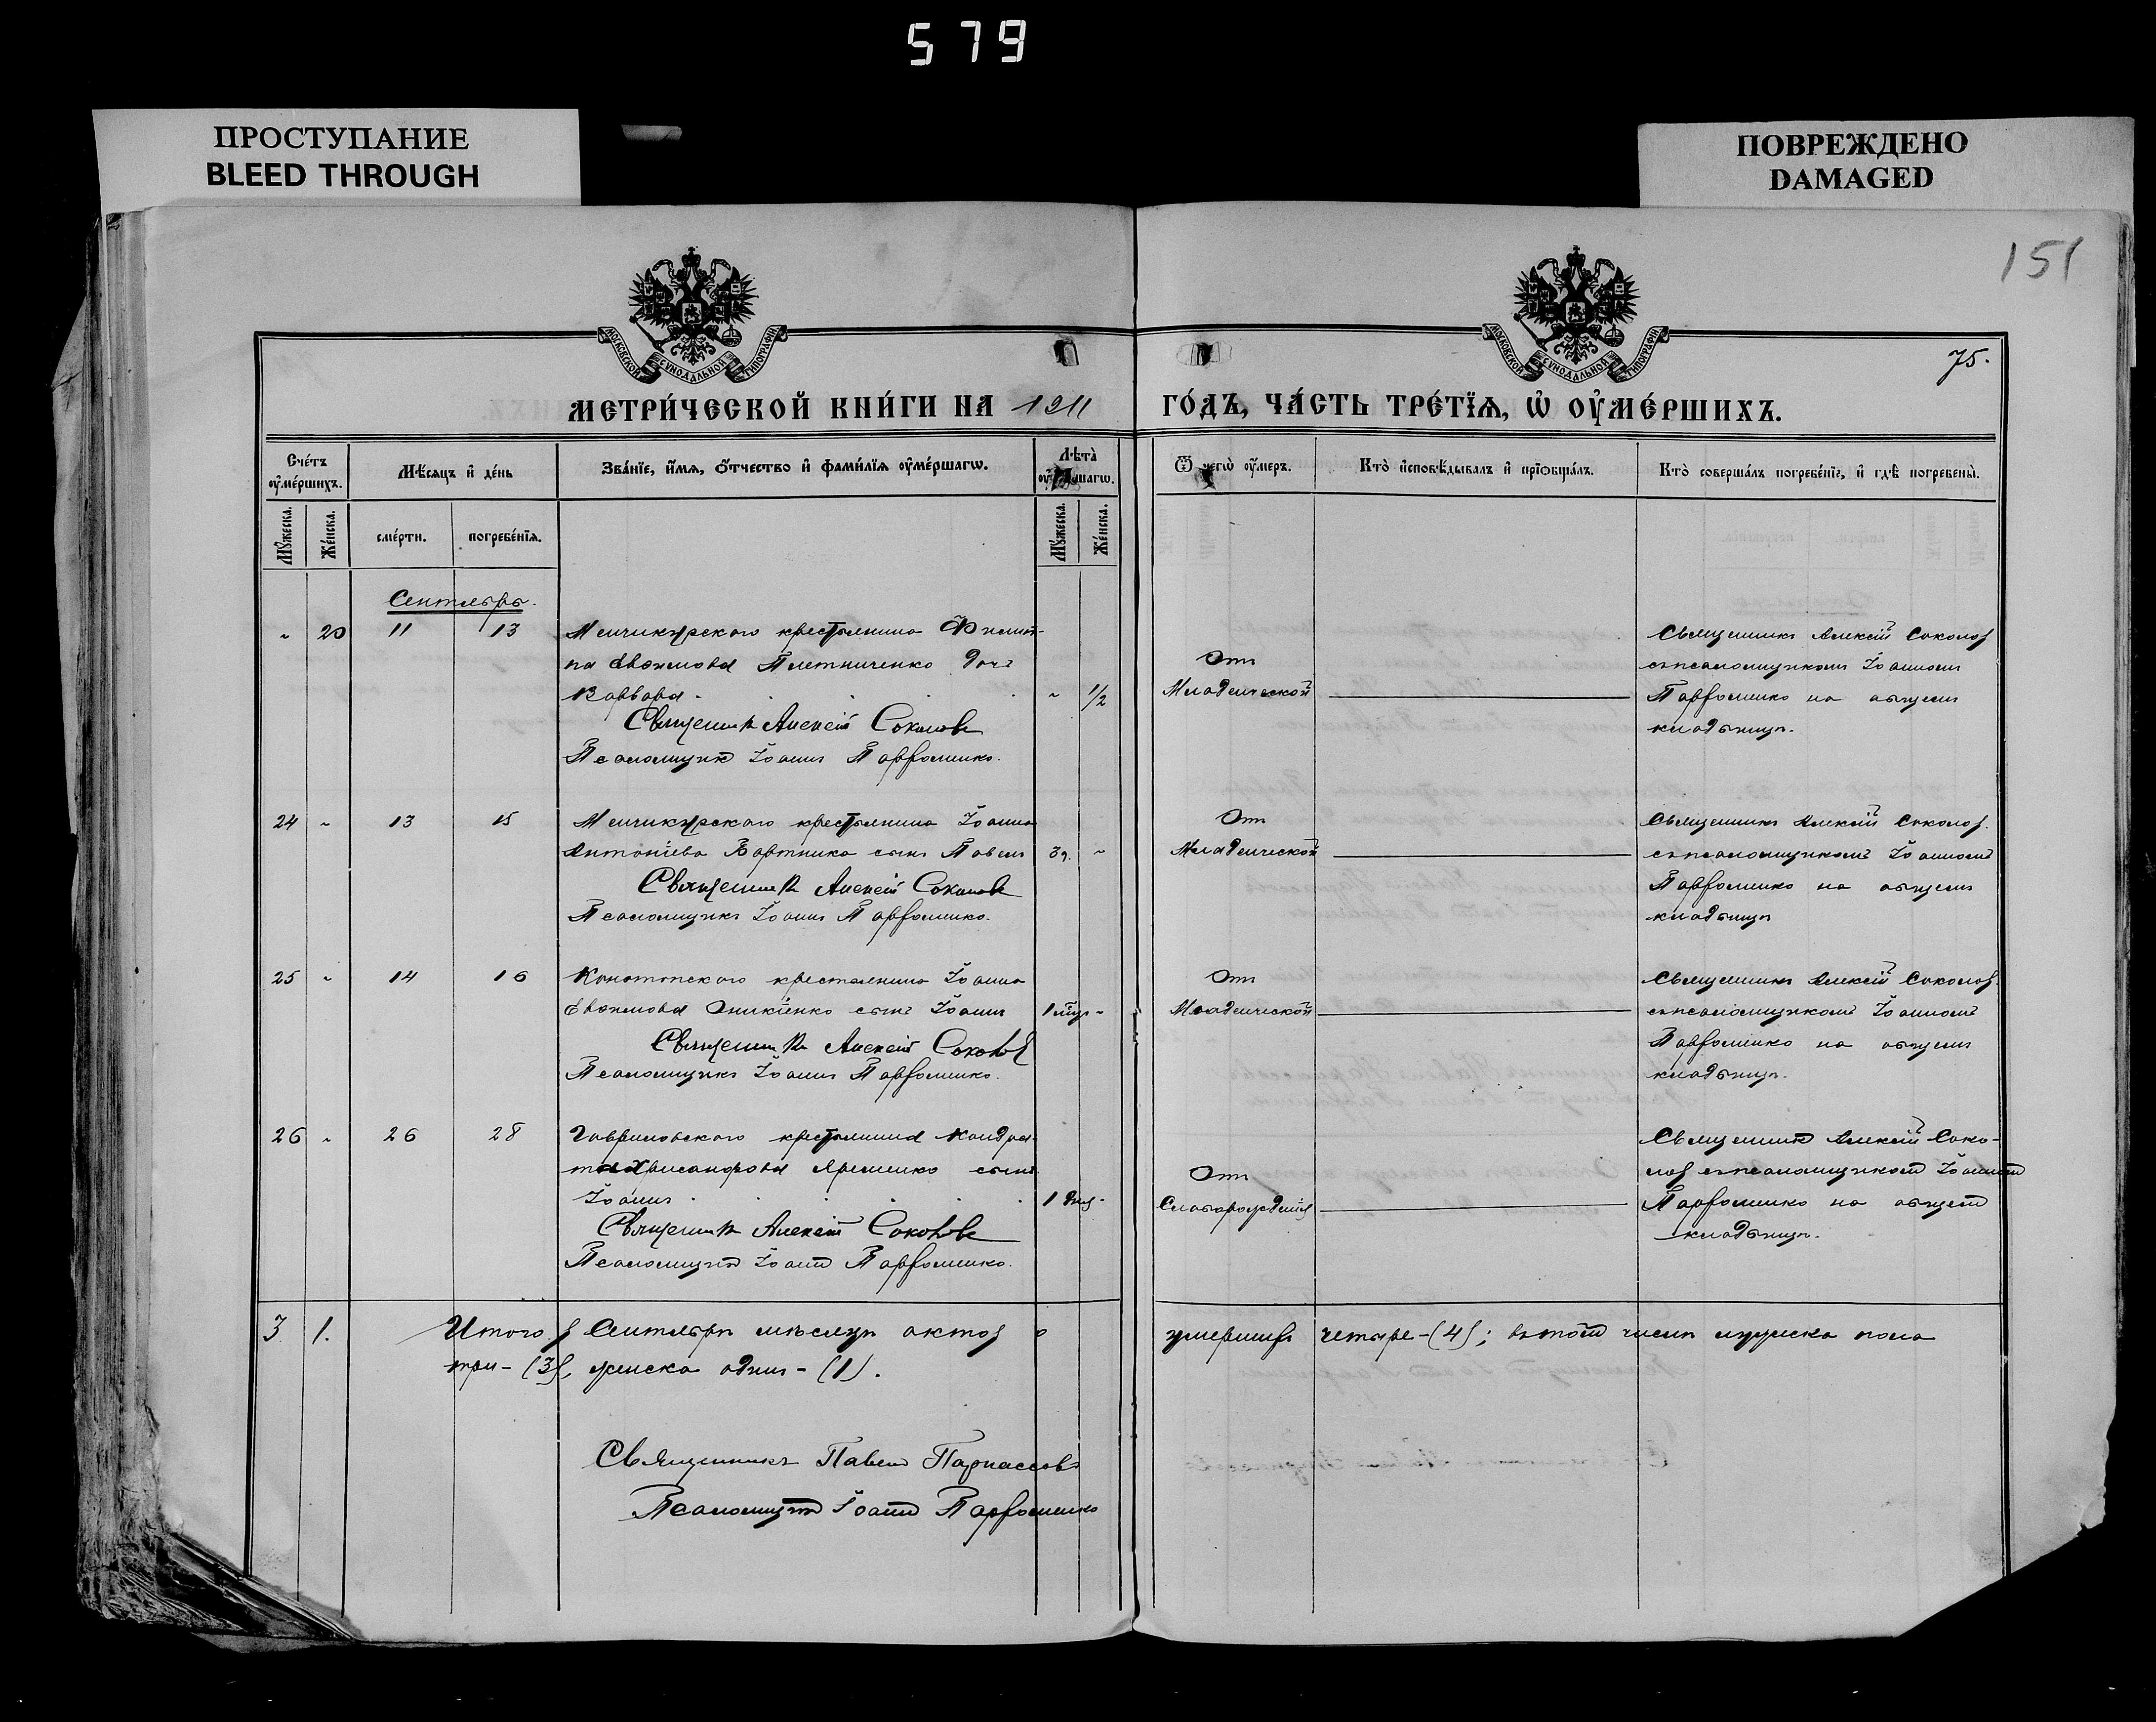 579
ПРОСТУПАНИЕ
BLEED THROUGH
ПОВРЕЖДЕНО
DAMAGED
151
МОСКОВСКОЙ СУНОДАЛЬНОЙ ТИПОГРАФІИ
МОСКОВСКОЙ СУНОДАЛЬНОЙ ТИПОГРАФІИ
75.
МЕТРИ́ЧЕСКОЙ КНИ́ГИ НА 1911 ГО́ДЪ, ЧА́СТЬ ТРЕ́ТЇѦ, Ѡ҆ ОУ҆МЕ́РШИХЪ.
Сче́тъ оу҆ме́ршихъ.
Мѣ́сѧцъ и҆ де́нь
Зва́нїе, и҆́мѧ, ѻ҆́тчество и҆ фами́лїѧ оу҆ме́ршагѡ.
Лѣ́та̀
Ѿ чегѡ̀ оу҆́меръ.
Кто̀ и҆сповѣ́дывалъ и҆ прїѡбща́лъ.
Кто̀ соверша́лъ погребе́нїе, и҆ гдѣ̀ погребены̀.
Мꙋ́жеска.
Же́нска.
сме́рти.
погребе́нїѧ.
Мꙋ́жеска.
Же́нска.
Сентябрь.
" 20 11 13 Менчикурского крестьянина Филип-
па Евфимова Плетниченко дочь
Варвара " 1/2
Священникъ Алексій Соколовъ
Псаломщикъ Іоаннъ Парфоменко.
Отъ
Младенческой
Священникъ Алексій Соколов
съ псаломщикомъ Іоанномъ
Парфоменко на общемъ
кладбищѣ.
24 " 13 15 Менчикурского крестьянина Іоанна
Антоніева Вортника сынъ Павелъ "
Священникъ Алексій Соколовъ
Псаломщикъ Іоаннъ Парфоменко.
Отъ
Младенческой
Священникъ Алексій Соколов.
съ псаломщикомъ Іоанномъ
Парфоменко на общемъ
кладбищѣ
25 " 14 16 Конотопского крестьянина Іоанна
Евфимова Оникіенко сынъ Іоаннъ 1 "
Священникъ Алексій Соколов
Псаломщикъ Іоаннъ Парфоменко.
Отъ
Младенческой
Священникъ Алексій Соколов.
съ псаломщикомъ Іоанномъ
Парфоменко на общемъ
кладбищѣ.
26 " 26 28 Гавриловского крестьянина Кондра-
та Хрисанфова Яременко сынъ
Іоаннъ 1 дня
Священникъ Алексій Соколовъ
Псаломщикъ Іоаннъ Парфоменко.
Отъ
Слаборожденія
Священникъ Алексій Соко-
лов съ псаломщикомъ Іоанномъ
Парфоменко на общемъ
кладбищѣ.
3 1. Итого в Сентябрѣ мѣсяцѣ актов о умерших четыре-(4); въ томъ числѣ мужеска пола
три-(3), женска один-(1).
Священникъ Павелъ Парнассовъ
Псаломщикъ Іоаннъ Парфоменко